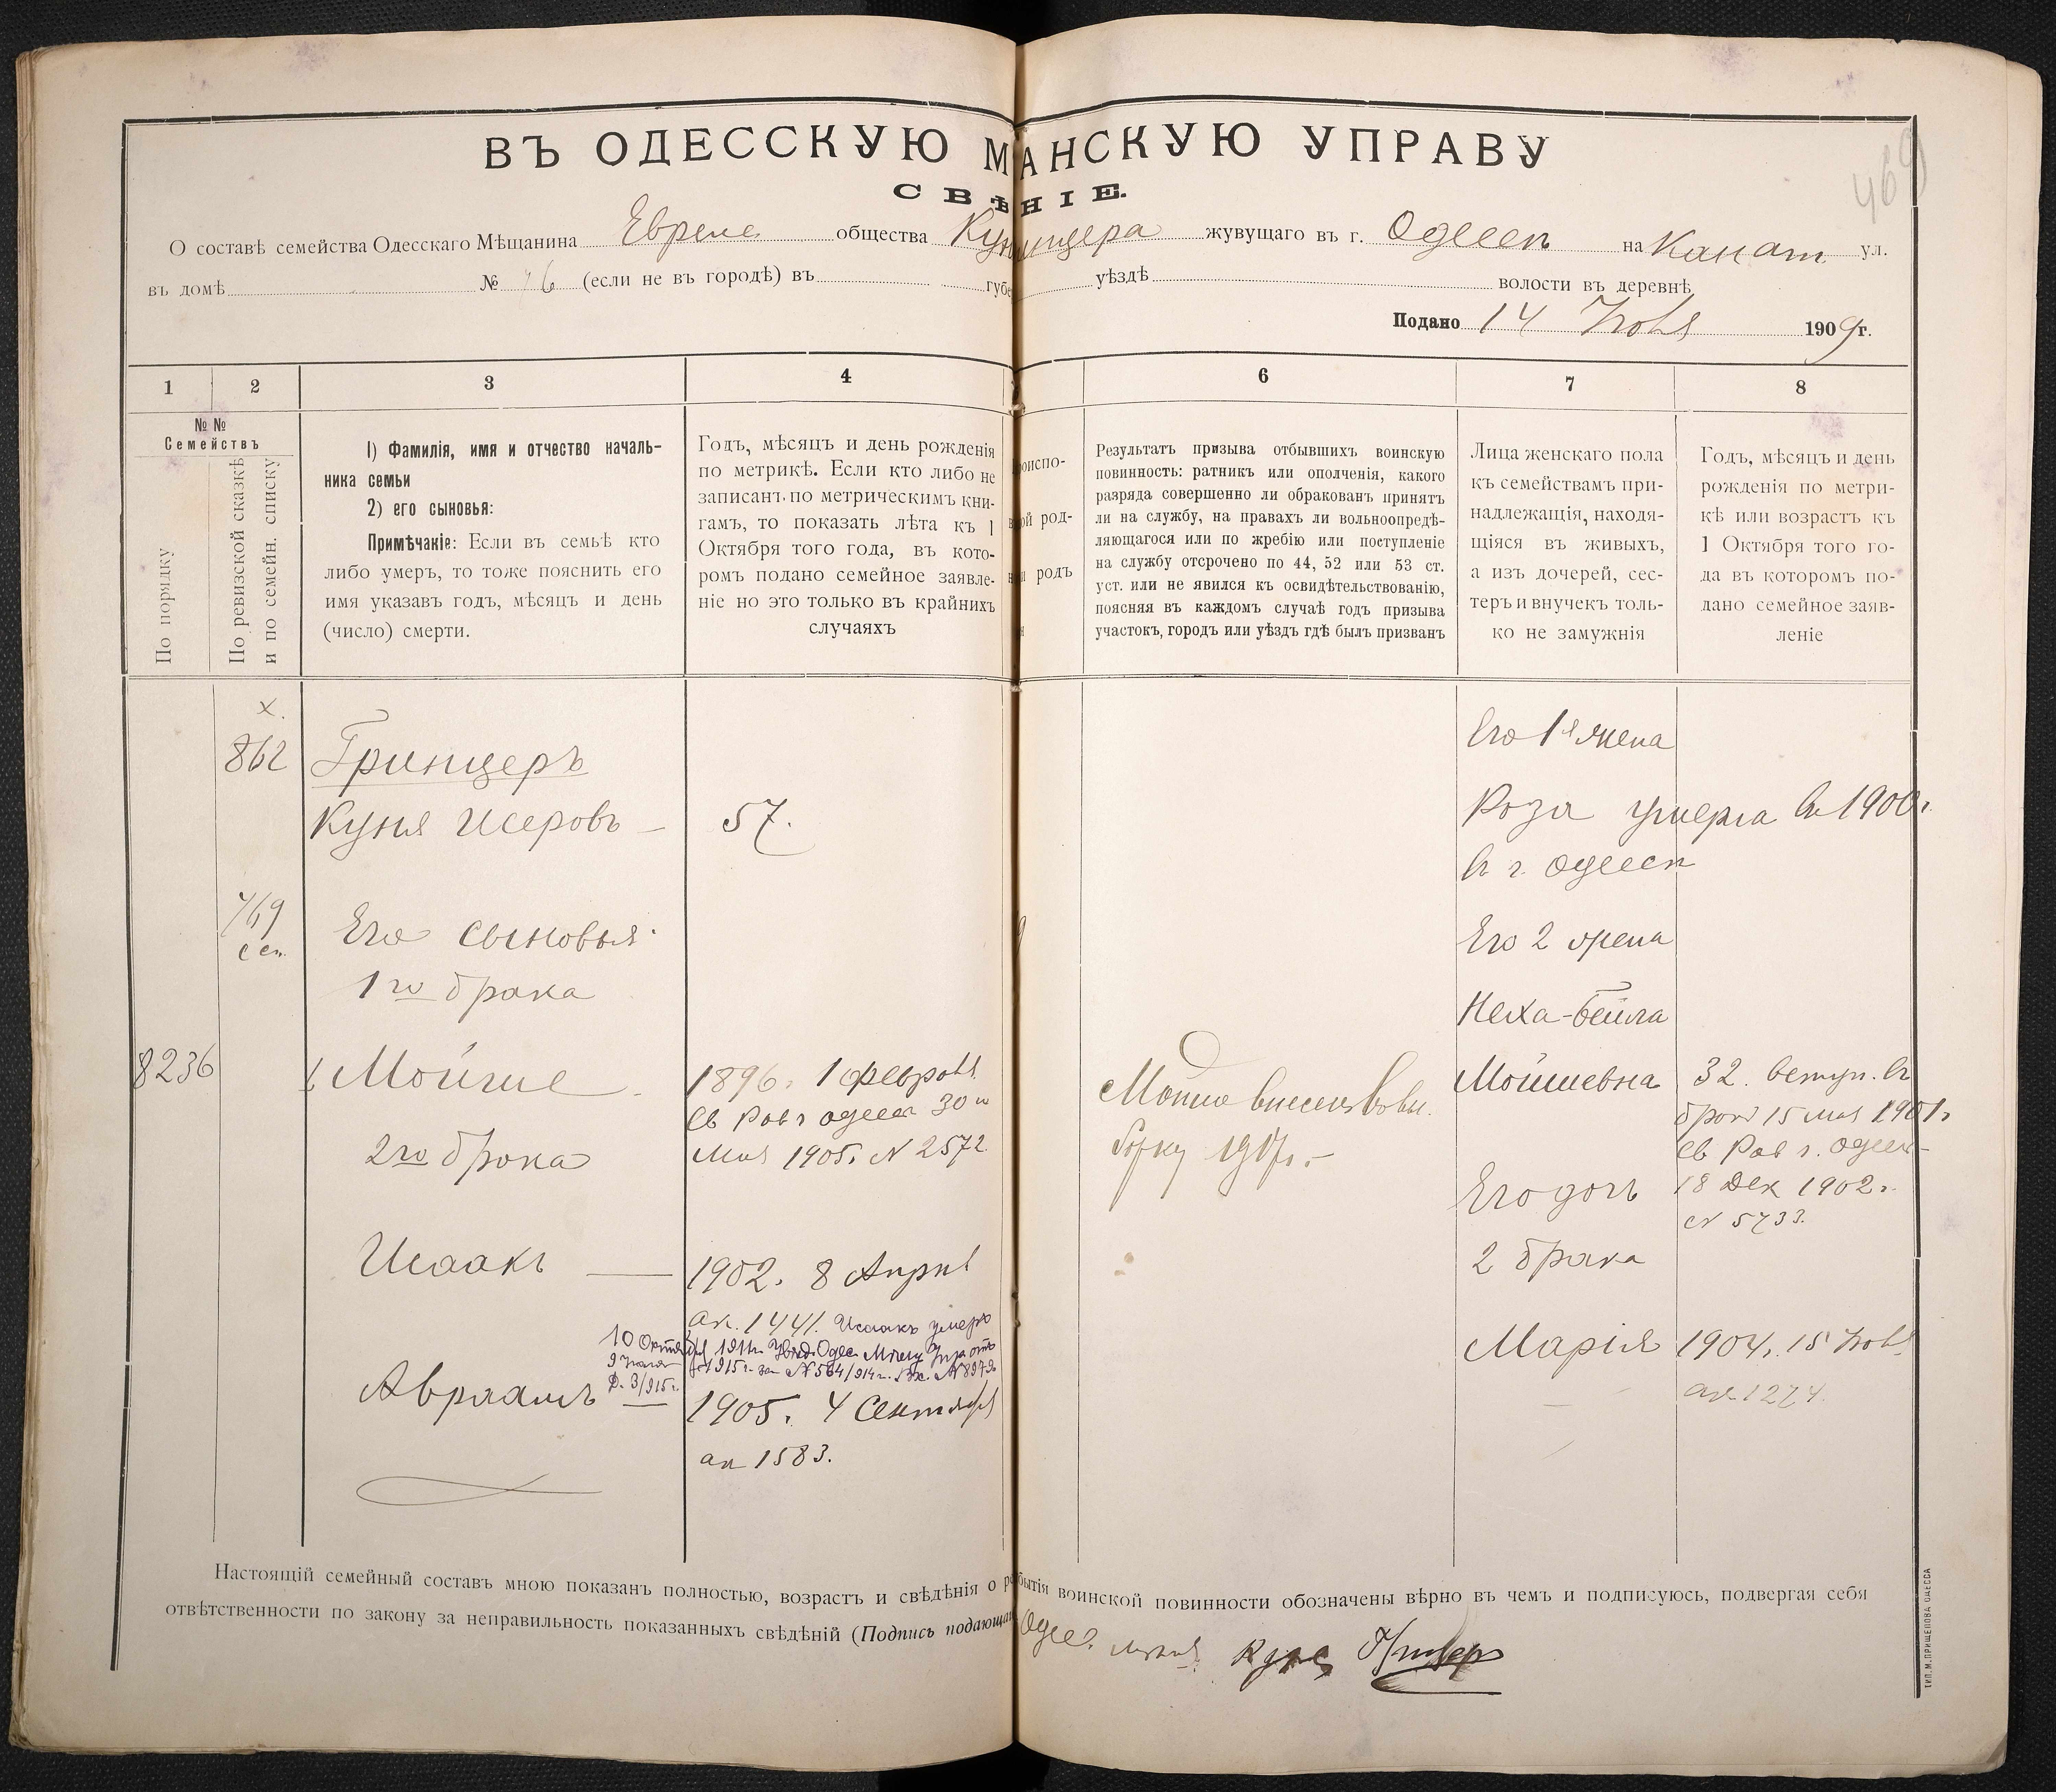 469
ВЪ ОДЕССКУЮ М АНСКУЮ УПРАВУ
СВѢ НІЕ.
О составѣ семейства Одесскаго Мѣщанина Еврея общества жувущаго въ г. Одессѣ на Канатн ул.
въ домѣ № 76 (если не въ городѣ) въ губе уѣздѣ волости въ деревнѣ
Подано 14 1909 г.
1 2 3 4 6 7 8
№№
Семействъ
По порядку
По ревизской сказкѣ
и по семейн. списку
1) Фамилія, имя и отчество началь-
ника семьи
2) его сыновья:
Примѣчаніе: Если въ семьѣ кто
либо умеръ, то тоже пояснить его
имя указавъ годъ, мѣсяцъ и день
(число) смерти.
Годъ, мѣсяцъ и день рожденія
по метрикѣ. Если кто либо не
записанъ по метрическимъ кни-
гамъ, то показать лѣта къ 1
Октября того года, въ кото-
ромъ подано семейное заявле-
ніе но это только въ крайнихъ
случаяхъ
роиспо-
ой род-
родъ
Результатъ призыва отбывшихъ воинскую
повинность: ратникъ или ополченія, какого
разряда совершенно ли обракованъ принятъ
ли на службу, на правахъ ли вольноопредѣ-
ляющагося или по жребію или поступленіе
на службу отсрочено по 44, 52 или 53 ст.
уст. или не явился къ освидѣтельствованію,
поясняя въ каждомъ случаѣ годъ призыва
участокъ, городъ или уѣздъ гдѣ былъ призванъ
Лица женскаго пола
къ семействамъ при-
надлежащія, находя-
щіяся въ живыхъ,
а изъ дочерей, сес-
теръ и внучекъ толь-
ко не замужнія
Годъ, мѣсяцъ и день
рожденія по метри-
кѣ или возрастъ къ
1 Октября того го-
да въ которомъ по-
дано семейное заяв-
леніе
х.
862 Гринцеръ
Куня Исеровъ — 57.
769
сем.
Его сыновья
1го брака
8236
Мойше 1896. 1 февраля
Св Рав г Одессы 30го
Мая 1905. N 2572
2го брака
Исаакъ — 1902. 8 Апрѣл
ак. 1441. Исаакъ умеръ
10 Октября 1911г.
1915г. за N 564/914г. Вх. N 8979
Д. 3/915г.
Авраамъ — 1905. 4 Сентября
ак 1583.
Мойше внесенъ
1917г. —
Его 1я жена
Роза умерла въ 1900г.
въ г. Одессѣ
Его 2 жена
Неха-Бейла
Мойшевна 32. вступ. въ
бракъ 15 мая 1901г
Св Рав г. Одессы
18 Дек 1902г.
N 5733.
Его дочь
2 брака
Марія 1904. 15
ак 1274.
Настоящій семейный составъ мною показанъ полностью, возрастъ и свѣдѣнія о бытія воинской повинности обозначены вѣрно въ чемъ и подписуюсь, подвергая себя
отвѣтственности по закону за неправильность показанныхъ свѣдѣній (Подпись подающа Одес.
ТИП. М. ПРИЩЕПОВА ОДЕССА